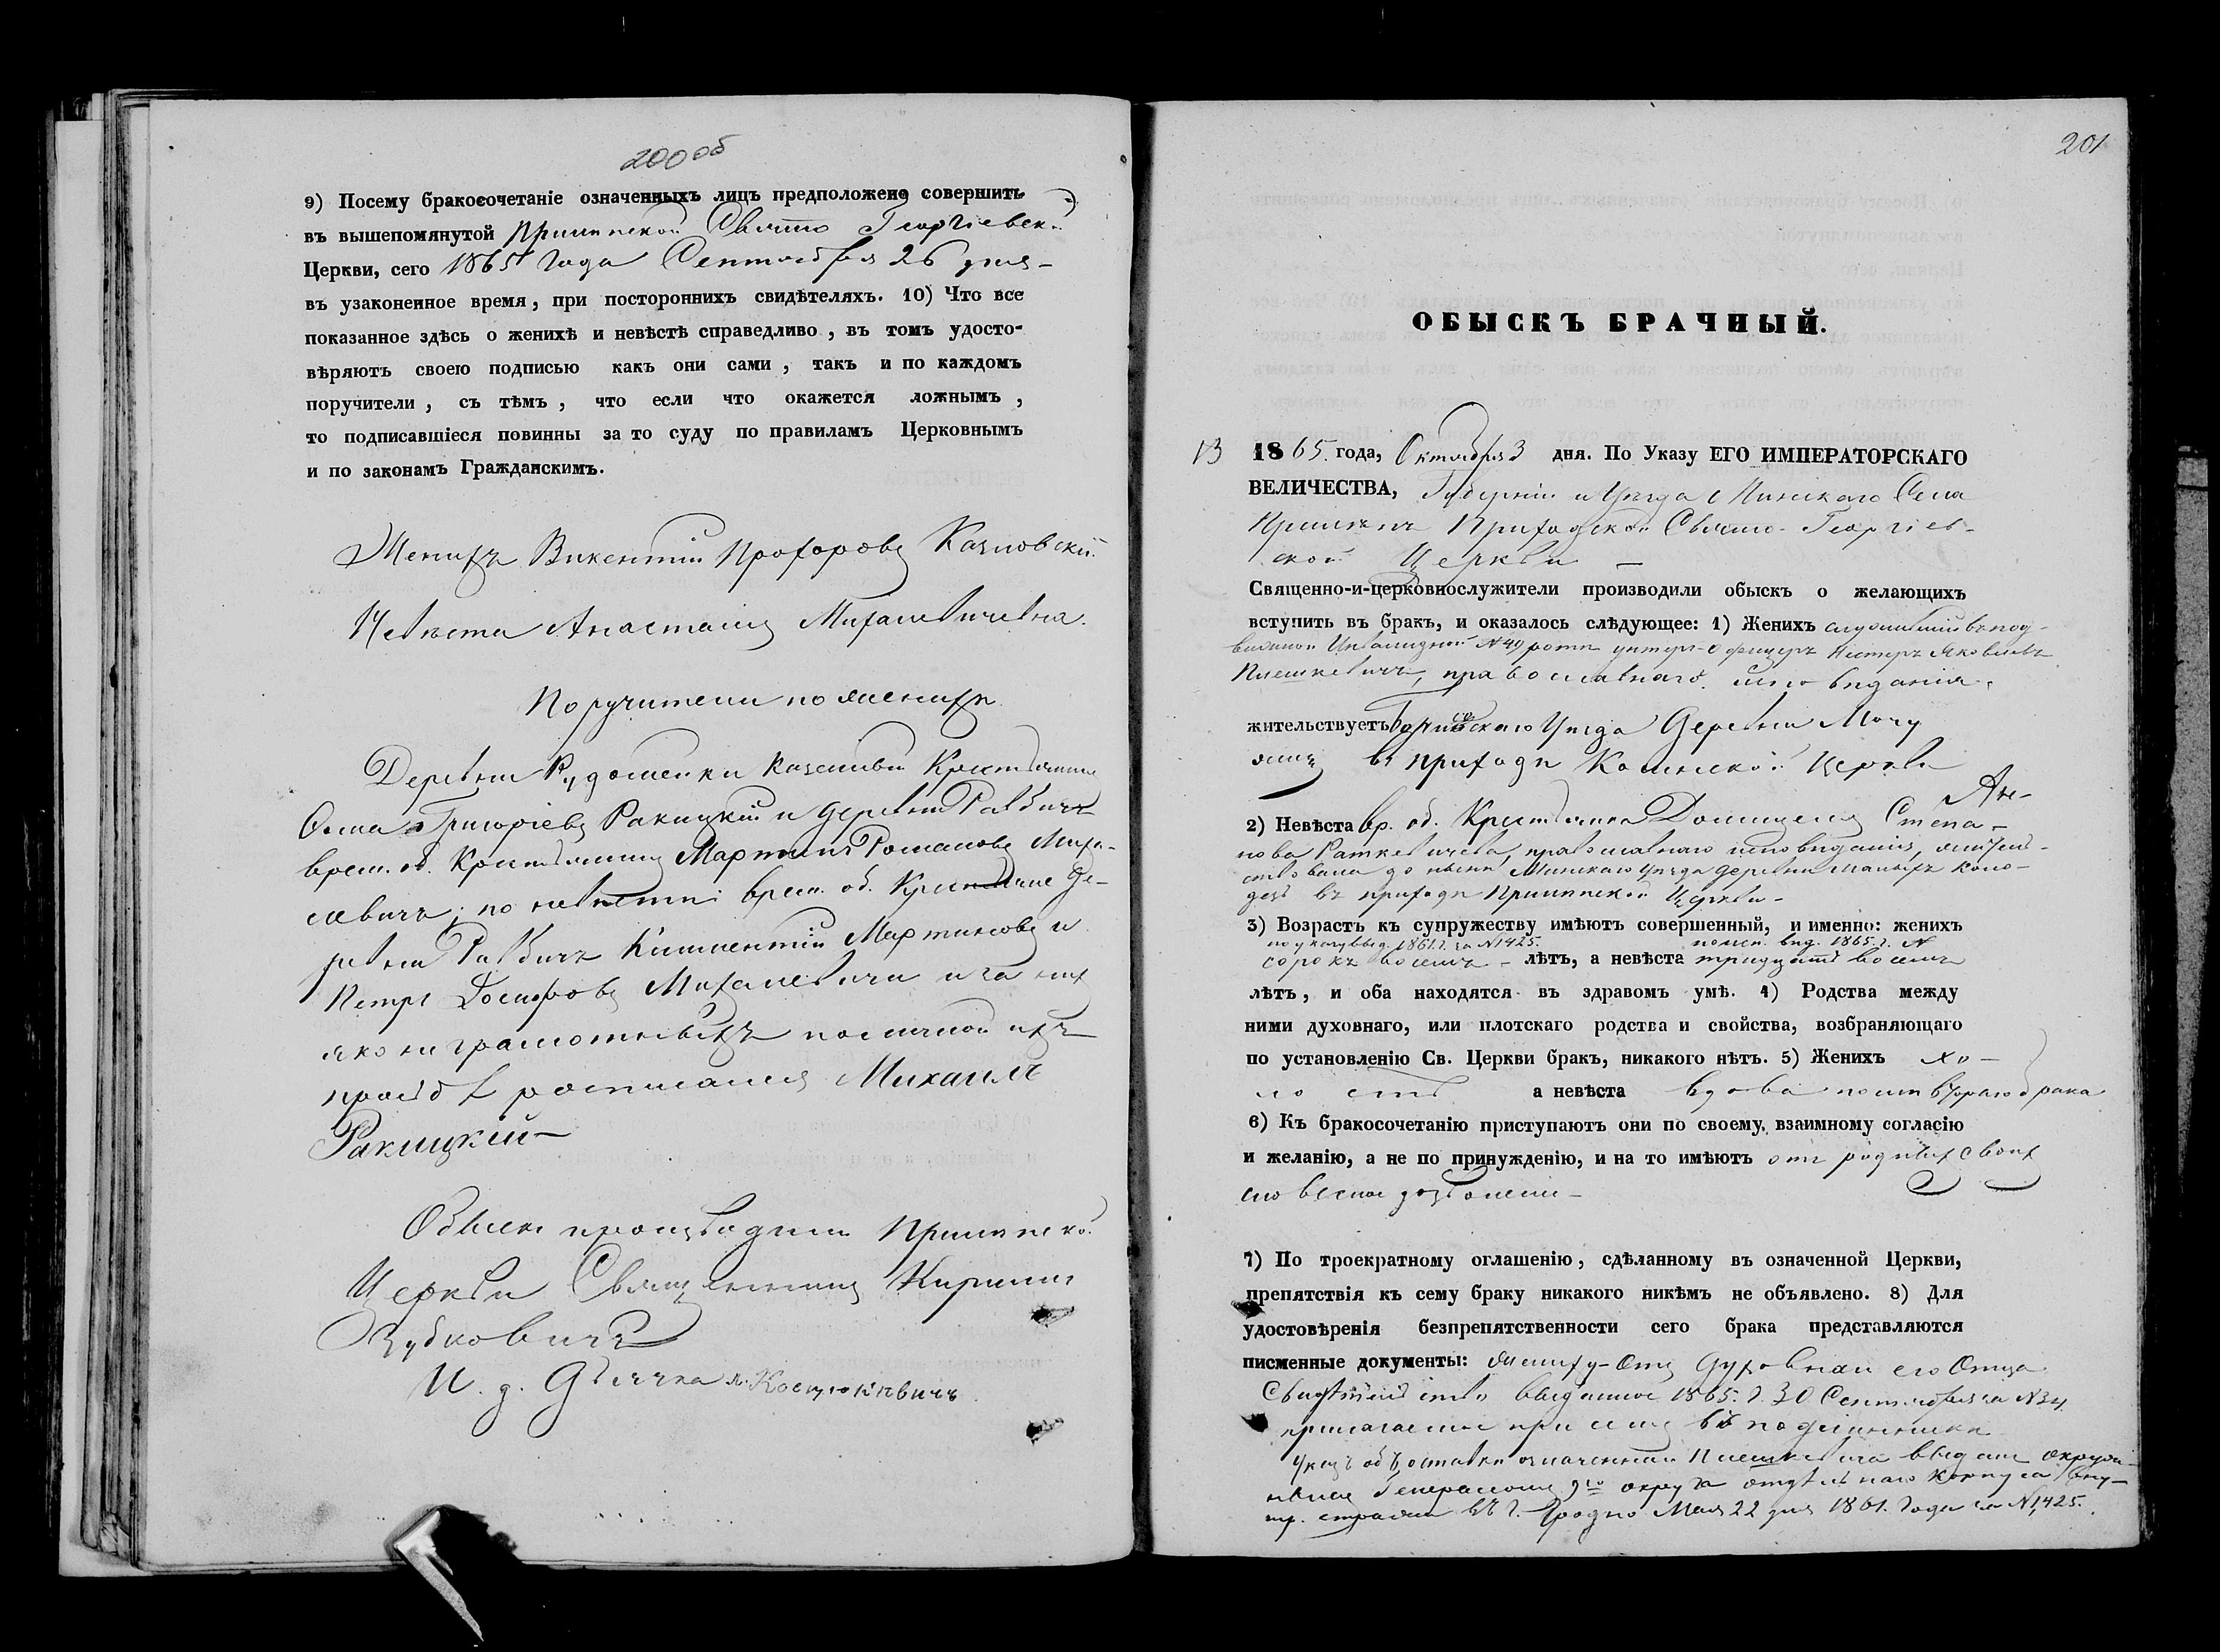 200 об
9) Посему бракосочетаніе означенныхъ лицъ предположено совершить
въ вышепомянутой Прилѣпской Свято Георгіевской
Церкви, сего 1865 года Сентября 26 дня
въ узаконенное время, при постороннихъ свидѣтеляхъ. 10) Что все
показанное здѣсь о женихѣ и невѣстѣ справедливо, въ томъ удосто-
вѣряютъ своею подписью какъ они сами, такъ и по каждомъ
поручители, съ тѣмъ, что если что окажется ложнымъ,
то подписавшіеся повинны за то суду по правиламъ Церковнымъ
и по законамъ Гражданскимъ.
Женихъ Викентій Прохоровъ
Невѣста Анастасія Михалевичевна.
Поручители по женихѣ
Деревни Рудоменки Крестьянинъ
Ѳома Григоріевъ Ракицкій и деревни
врем. об. Крестьянинъ Мартинъ Романовъ Миха-
левичъ; по невѣстѣ врем. об. Крестьяне де-
ревни Климентій Мартиновъ и
Петръ Михалевичи и за них
яко неграмотныхъ по личной ихъ
прозьбѣ росписался Михаилъ
Ракицкій
Обыскъ производили Прилѣпской
Церкви Священникъ Кириллъ
Зубковичъ
И. д. Дьячка
201
13 1865 года, Октября 3 дня. По Указу ЕГО ИМПЕРАТОРСКАГО
ВЕЛИЧЕСТВА, Губерніи и Уѣзда Минскаго Села
Прилѣпъ Приходской Свято-Георгіев-
ской Церкви
Священно-и-церковнослужители производили обыскъ о желающихъ
вступить въ бракъ, и оказалось слѣдующее: 1) Женихъ служившій въ под-
вижной Инвалидной № 49 ротѣ унтеръ-офицеръ Нестеръ Яковлевъ
Плешкевичъ, православнаго исповѣданія,
жительствуетъ Борисовскаго Уѣзда Деревни
въ приходѣ Церкви
2) Невѣста вр. об. Крестьянка Домицеля Степа-
нова Раткевичева, православнаго исповѣданія, жительс-
ствовала до нынѣ Минскаго Уѣзда деревни Малыхъ Коло-
дезь въ приходѣ Прилѣпской Церкви
3) Возрастъ къ супружеству имѣютъ совершенный, и именно: женихъ
по указу выд. 1861 г. за № 1425. по исп. вѣд. 1865 г.
сорокъ восемь лѣтъ, а невѣста тридцать восемь
лѣтъ, и оба находятся въ здравомъ умѣ. 4) Родства между
ними духовнаго, или плотскаго родства и свойства, возбраняющаго
по установленію Св. Церкви бракъ, никакого нѣтъ. 5) Женихъ хо-
лостъ а невѣста вдова послѣ втораго брака
6) Къ бракосочетанію приступаютъ они по своему взаимному согласію
и желанію, а не по принужденію, и на то имѣютъ отъ родныхъ своих
словесное дозволеніе
7) По троекратному оглашенію, сдѣланному въ означенной Церкви,
препятствія къ сему браку никакого никѣмъ не объявлено. 8) Для
удостовѣренія безпрепятственности сего брака представляются
писменные документы: жениху отъ духовнаго его Отца
Свидѣтельство выданное 1865 г. 30 Сентября за № 34
прилагаемое при семъ въ подлинникѣ
Указъ объ отставкѣ означенному Плешкевичу выдан окруж-
нымъ Генераломъ 9го округа отдѣльнаго Корпуса вну-
тр. стражи въ г. Гродно Мая 22 дня 1861 года за № 1,425.